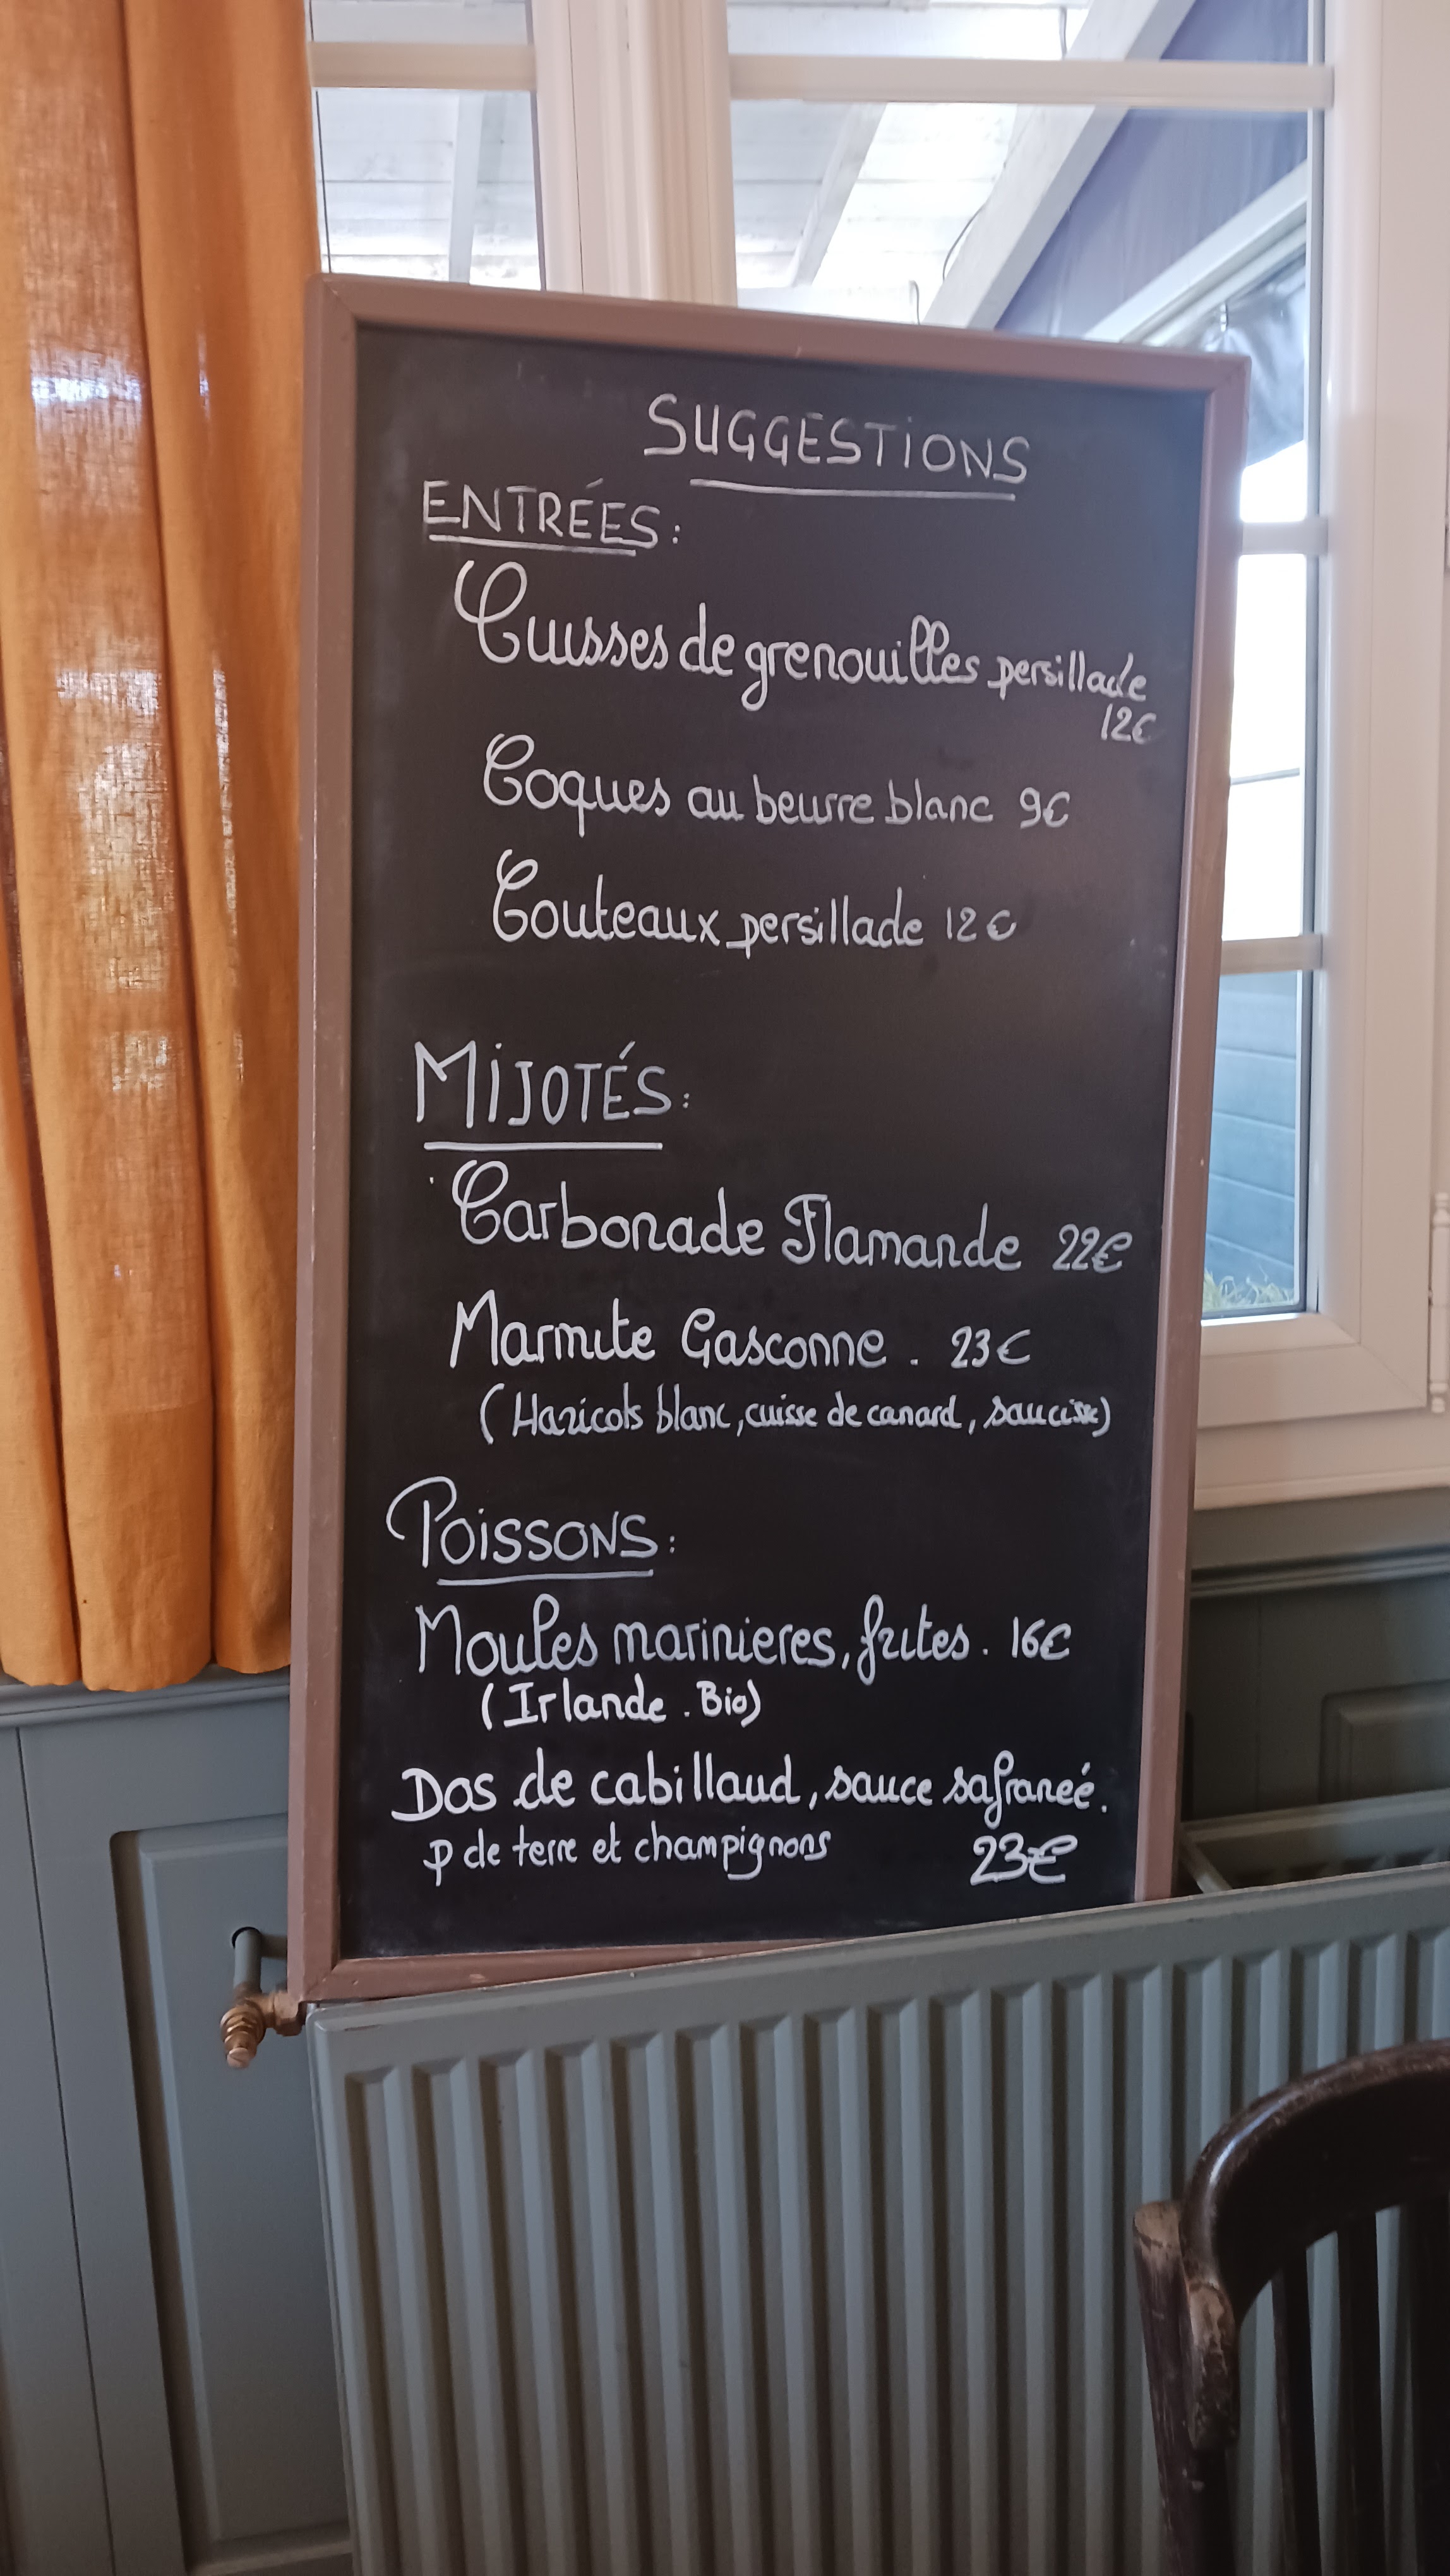 SUGGESTIONS
ENTRÉES :
Cuisses de grenouilles persillade
12€
Coques au beurre blanc 9€
Couteaux persillade 12€
MIJOTÉS :
Carbonade Flamande 22€
Marmite Gasconne . 23€
(Haricots blanc, cuisse de canard, saucisse)
POISSONS :
Moules marinieres, frites . 16€
(Irlande . Bio)
Dos de cabillaud, sauce safraneé.
p de terre et champignons 23€